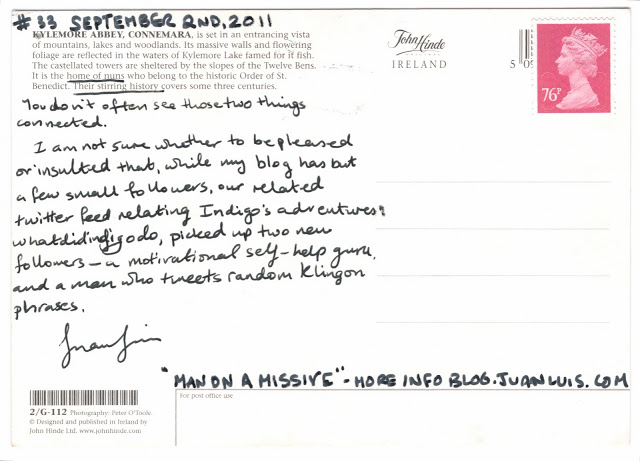 #33 SEPTEMBER 2ND, 2011
KYLEMORE ABBEY, CONNEMARA, is set in an entrancing vista
of mountains, lakes and woodlands. Its massive walls and flowering
foliage are reflected in the waters of Kylemore Lake famed for it fish.
The castellated towers are sheltered by the slopes of the Twelve Bens.
It is the home of nuns who belong to the historic Order of St.
Benedict. Their stirring history covers some three centuries.
John Hinde
IRELAND
5 09
76P
You don't often see those two things
connected.
I am not sure whether to be pleased
or insulted that, while my blog has but
a few small followers, our related
twitter feed relating Indigo's adventures:
whatdidindigodo, picked up two new
followers – a motivational self-help guru,
and a man who tweets random Klingon
phrases.
"MAN ON A MISSIVE" - MORE INFO BLOG.JUANLUIS.COM
For post office use
2/G-112 Photography: Peter O'Toole.
© Designed and published in Ireland by
John Hinde Ltd. www.johnhinde.com